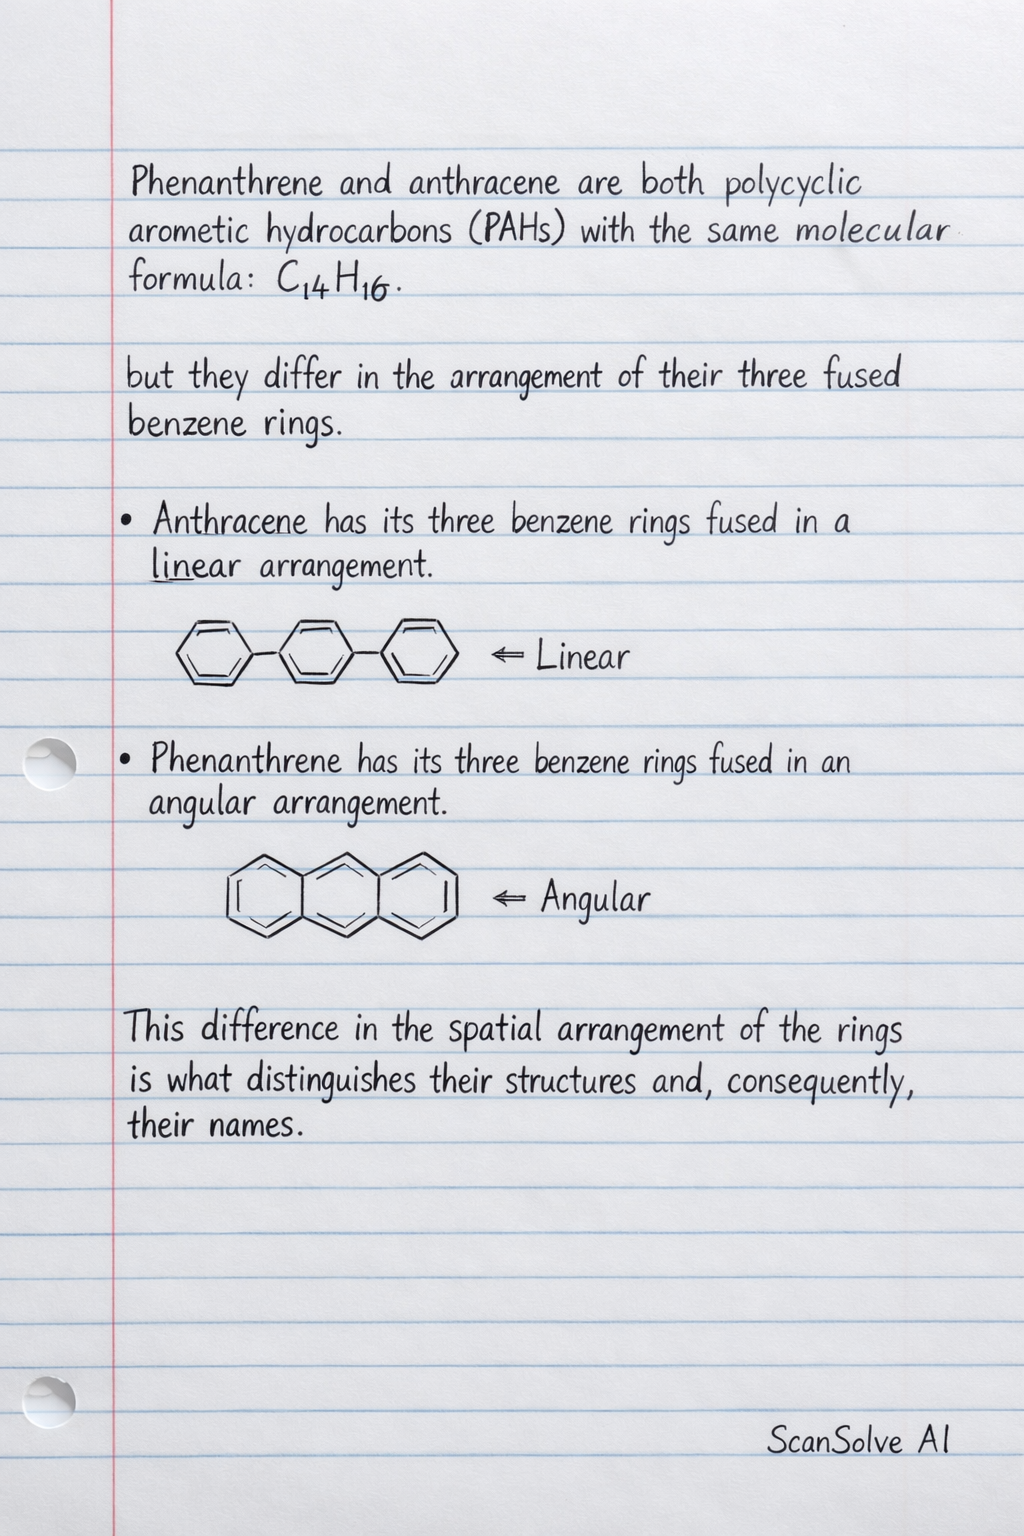 Phenanthrene and anthracene are both polycyclic
arometic hydrocarbons (PAHs) with the same molecular
formula: C₁₄H₁₆.
but they differ in the arrangement of their three fused
benzene rings.
• Anthracene has its three benzene rings fused in a
linear arrangement.
⇐ Linear
• Phenanthrene has its three benzene rings fused in an
angular arrangement.
⇐ Angular
This difference in the spatial arrangement of the rings
is what distinguishes their structures and, consequently,
their names.
ScanSolve AI